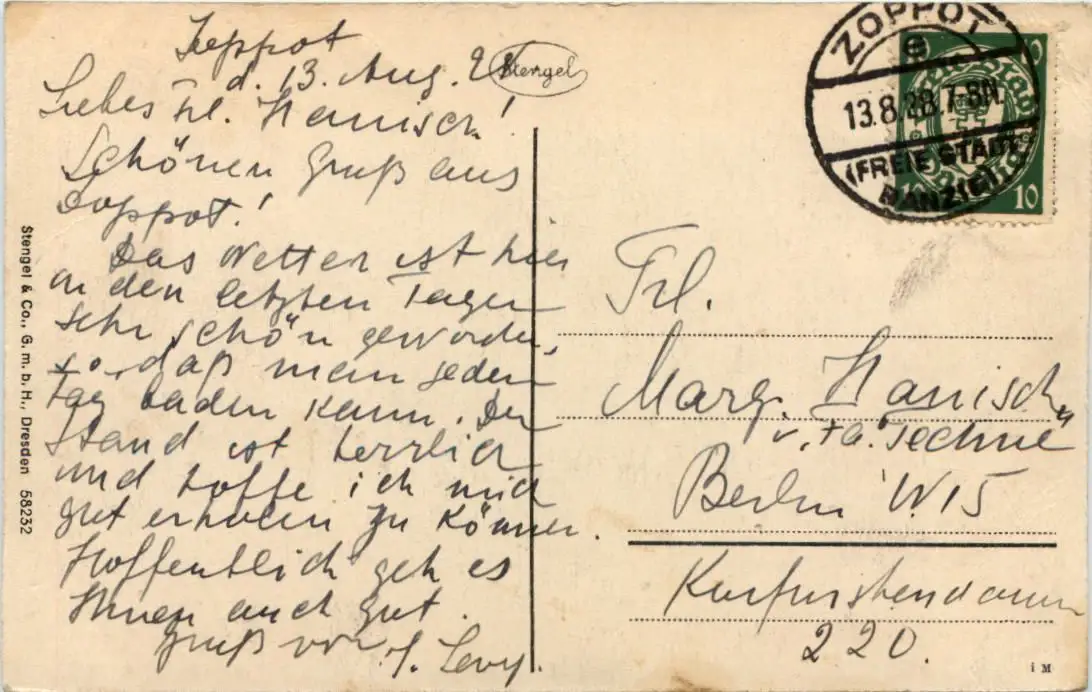 Zoppot
d. 13. Aug. 28
Stengel
Liebes Frl. Hanisch!
Schönen Gruß aus
Zoppot!
Das Wetter ist hier
in den letzten Tagen
sehr schön geworden,
so daß man jeden
Tag baden kann. Der
Strand ist herrlich
und hoffe ich mich
gut erholen zu können.
Hoffentlich geht es
Ihnen auch gut.
Gruß von
J. Levy.
Stengel & Co., G. m. b. H., Dresden 58232
ZOPPOT
13.8.28.7-8N.
(FREIE STADT
DANZIG)
10
10
Frl.
Marg. Hanisch
Berlin W.15
Kurfürstendamm
220.
i M